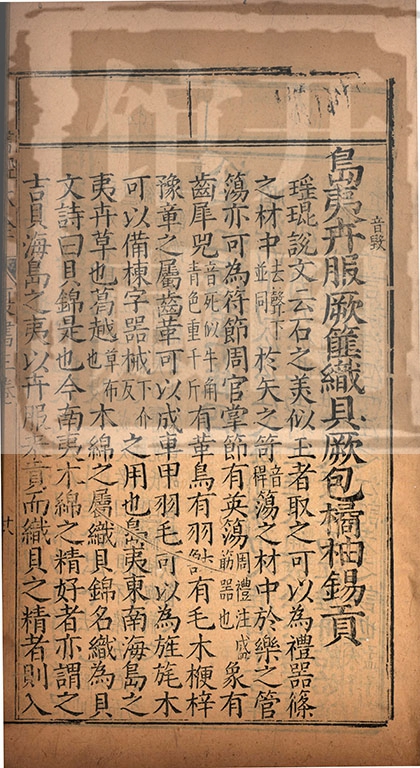 島夷卉服厥篚織貝厥包橘柚錫貢
音毀
瑤琨說文云石之美似玉者取之可以為禮器篠
之材中去聲下並同於矢之笴音稈簜之材中於樂之管
簜亦可為符節周官掌節有英簜周禮注盛節器也象有
齒犀兕音死似牛角青色重千斤有革鳥有羽有毛木楩梓
豫章之屬齒革可以成車甲羽毛可以為旌旄木
可以備棟宇器械下介反之用也島夷東南海島之
夷卉草也葛越草布也木綿之屬織貝錦名織為貝
文詩曰貝錦是也今南夷木綿之精好者亦謂之
吉貝海島之夷以卉服來貢而織貝之精者則入